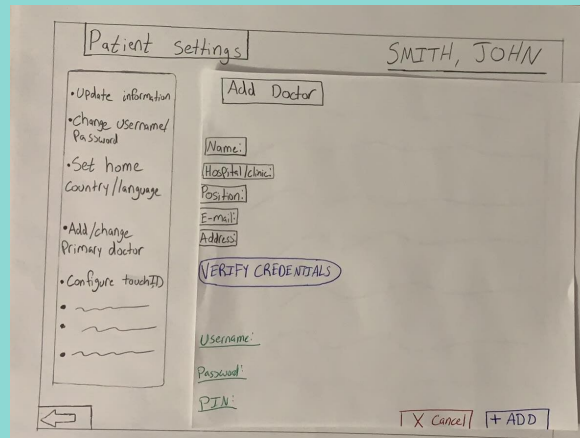 Patient Settings
SMITH, JOHN
• Update information
• Change Username/
Password
• Set home
Country/language
• Add/change
Primary doctor
• Configure touchID
Add Doctor
Name:
Hospital/clinic:
Position:
E-mail:
Address:
VERIFY CREDENTIALS
Username:
Password:
PIN:
X Cancel
+ ADD